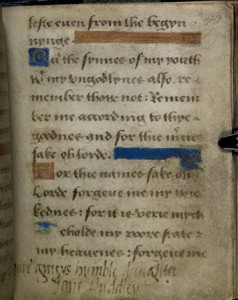 leste even from the begyn
nynge.
But the synnes of my youth
& my ungodlynes also. re=
member thow not: Remem
ber me according to thye
goodnes and for thie names
sake oh lorde.
For thie names sake oh
Lorde forgeve me my wic
kednes: for it is verie much
Beholde my poore state &
my heavenes: forgeve me
graces humble daughter
Jane Duddley